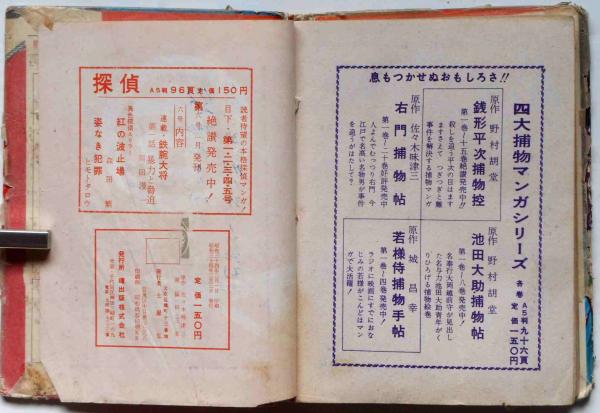 息もつかせぬおもしろさ!!
四大捕物マンガシリーズ
各巻 A5判九十六頁
定価一五〇円
原作 野村胡堂
銭形平次捕物控
第一巻~十五巻絶讃発売中!!
殺しを追う平次の目はます
ますさえて つぎつぎと難
事件を解決する捕物マンガ
原作 野村胡堂
池田大助捕物帖
第一巻~八巻発売中!
名奉行大岡越前守が見出し
た名与力池田大助青年がく
りひろげる捕物絵巻
原作 佐々木味津三
右門捕物帖
第一巻~二十巻好評発売中
人よんでむっつり右門 今
江戸で名高い名物男が事件
を追うがはたして?
原作 城昌幸
若様侍捕物手帖
第一巻~四巻発売中!
ラジオに映画にすでにおな
じみの若様がこんどはマン
ガで大活躍!
探偵
A5判96頁定価150円
読者待望の本格探偵マンガ!
目下・第一・二・三・四・五号
絶讃発売中!
第六号
六号内容
連載・鉄腕大将
第一話 暴力と脅迫
紅の波止場
姿なき犯罪
定価一五〇円
発行所